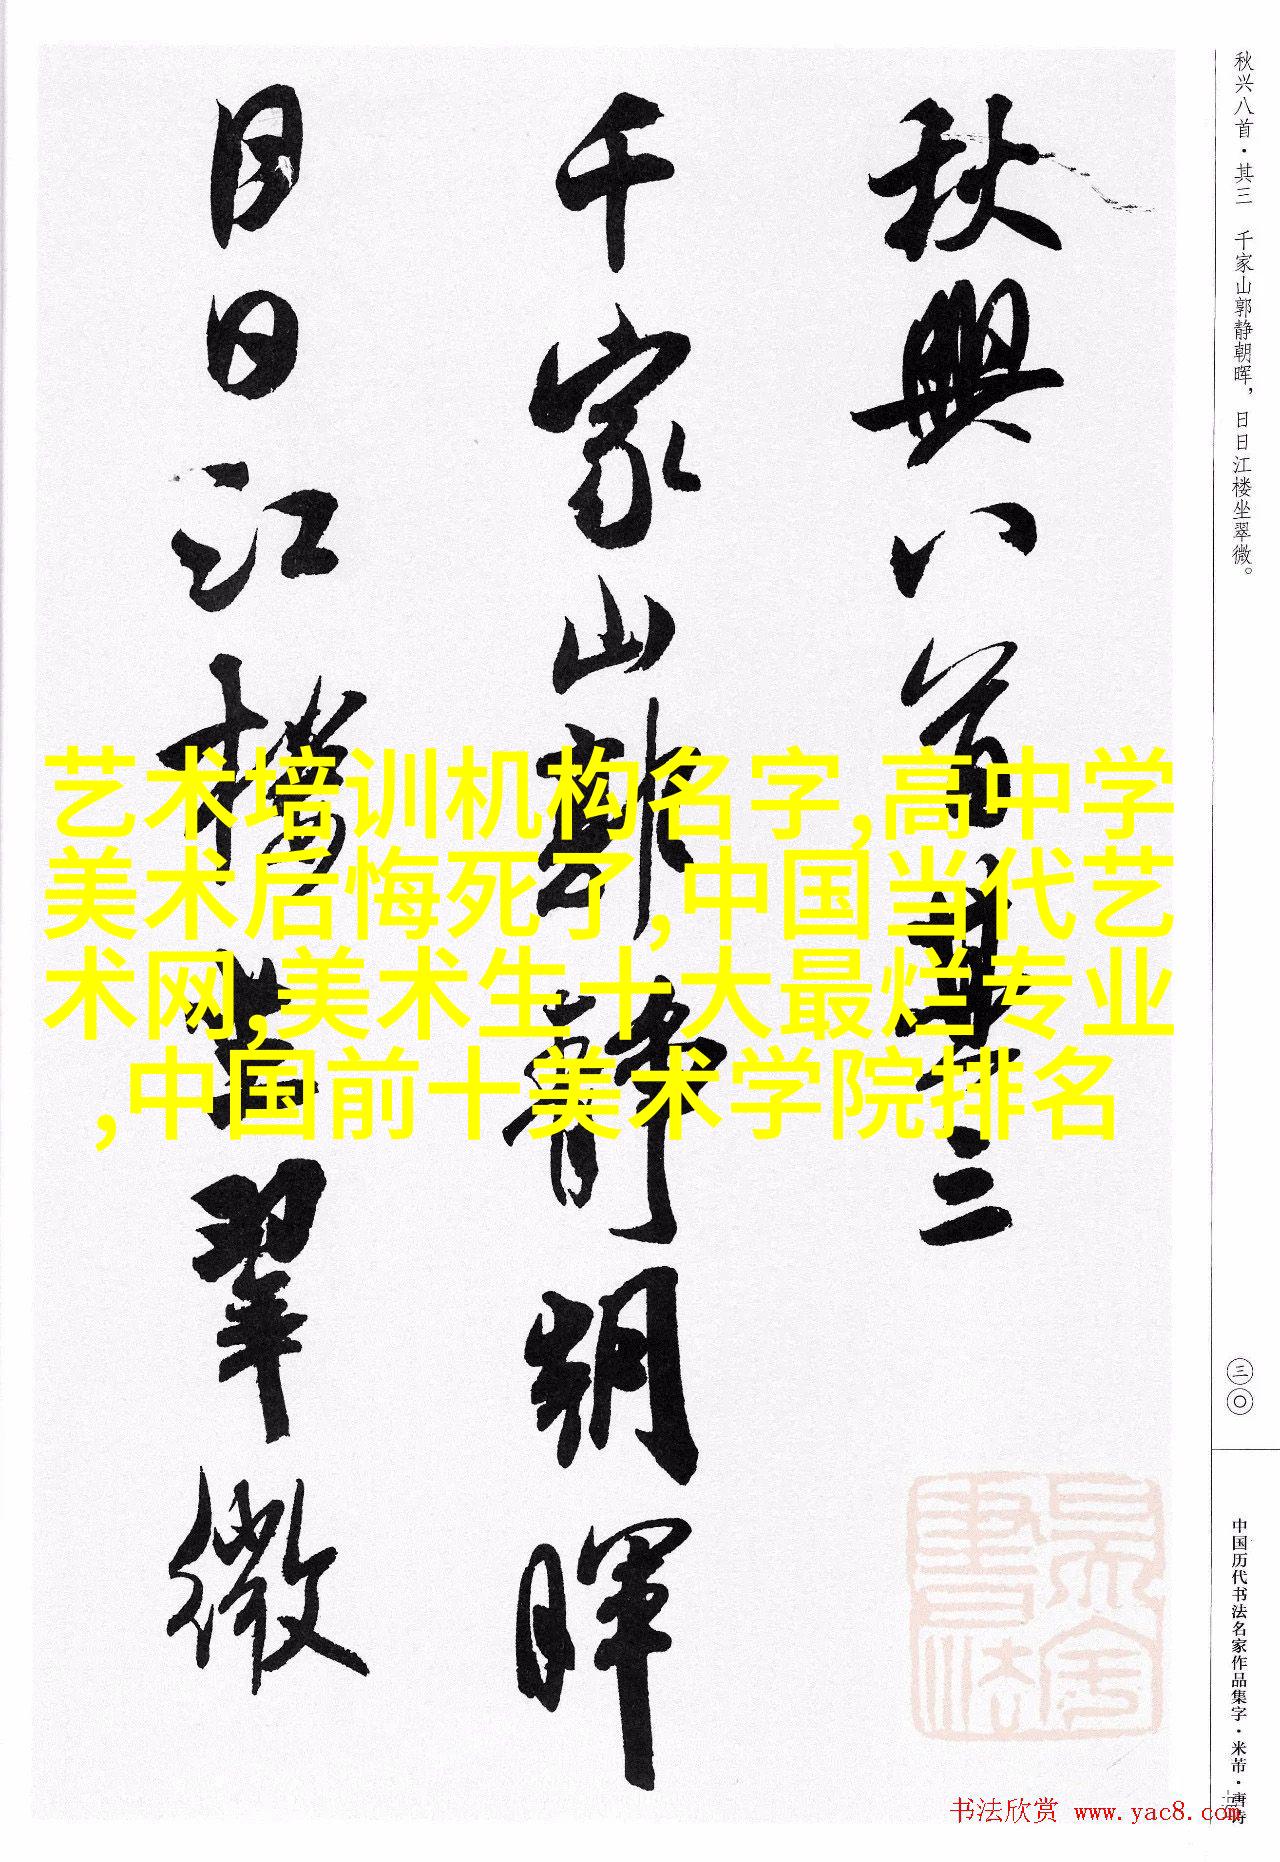 秋興八首其三
千家山郭静朝暉
日日江楼坐翠微
艺术培训机构名字,高中学
美术后悔死了,中国当代艺
术网,美术生十大最烂专业
,中国前十美术学院排名
秋兴八首·其三 千家山郭静朝晖，日日江楼坐翠微。
三〇
中国历代书法名家作品集字·米芾·唐诗
书法欣赏 www.yac8.com